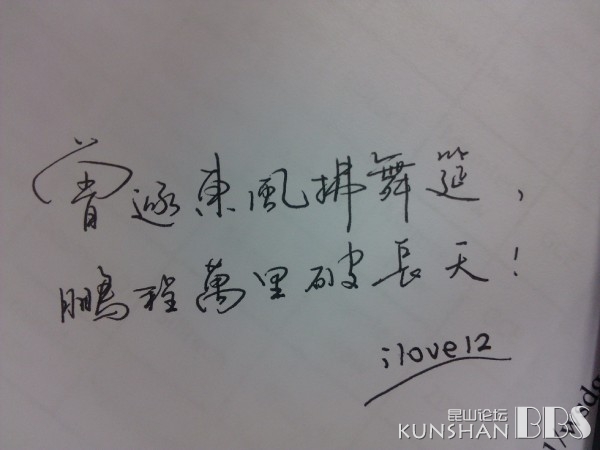 曾逐東風拂舞筵，
鵬程萬里破長天！
ilove12
昆山论坛
KUNSHAN BBS